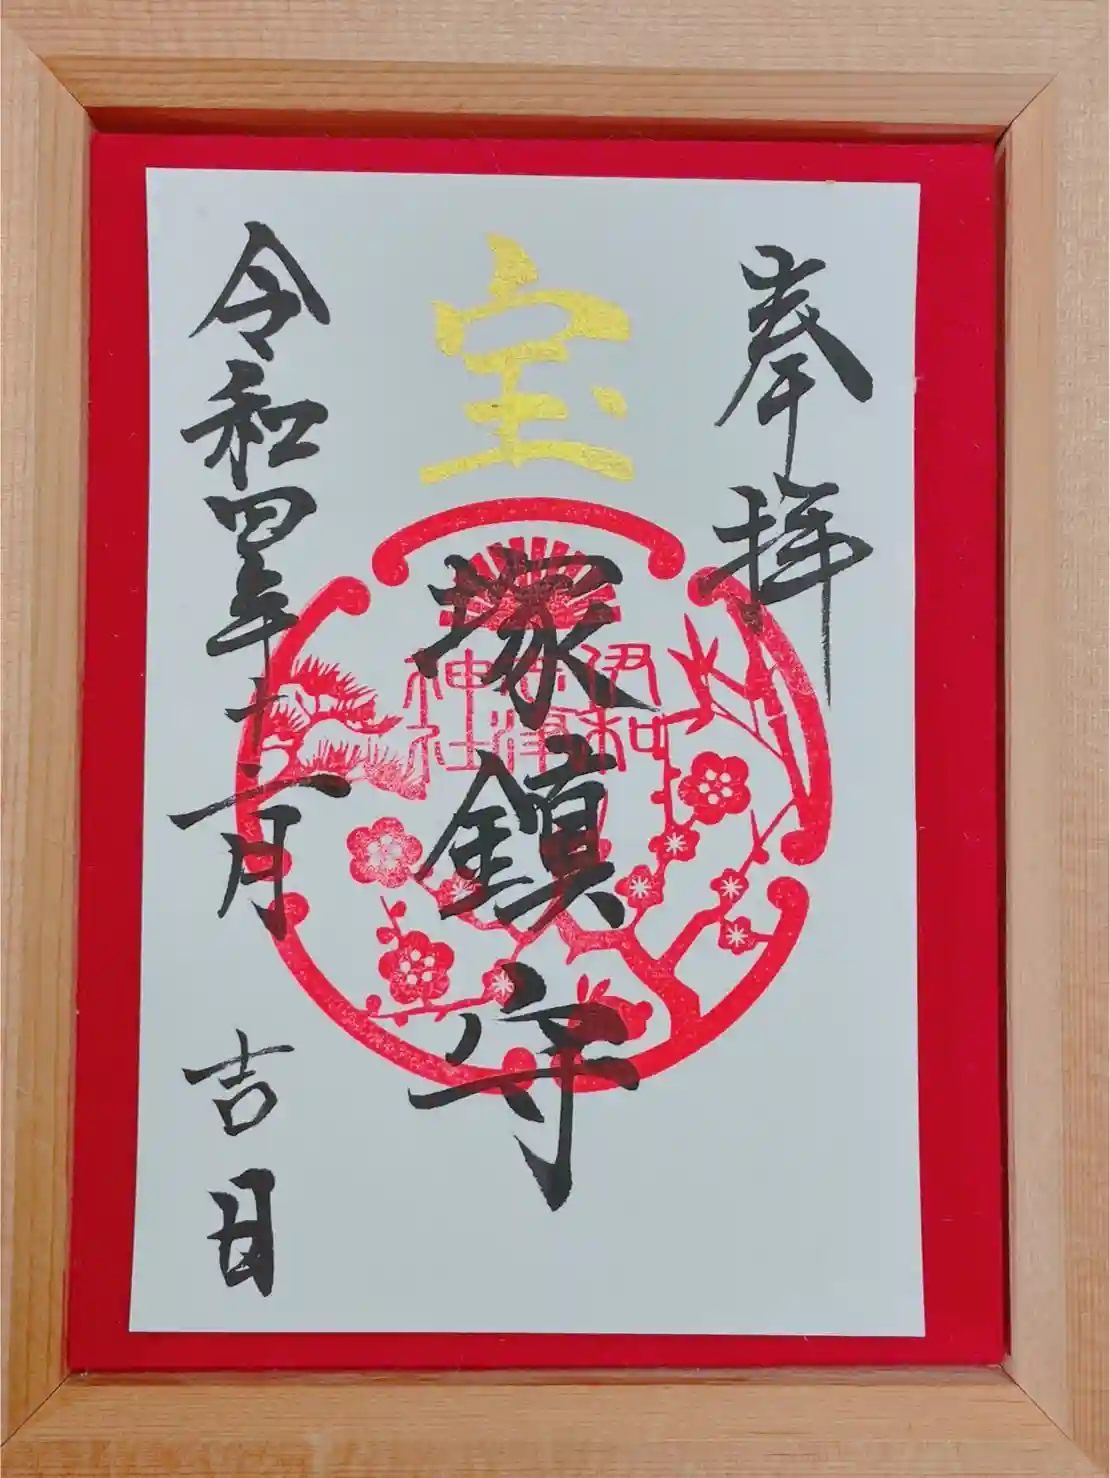 奉拝
宝塚鎮守
伊和
志津
神社
令和四年十二月 吉日